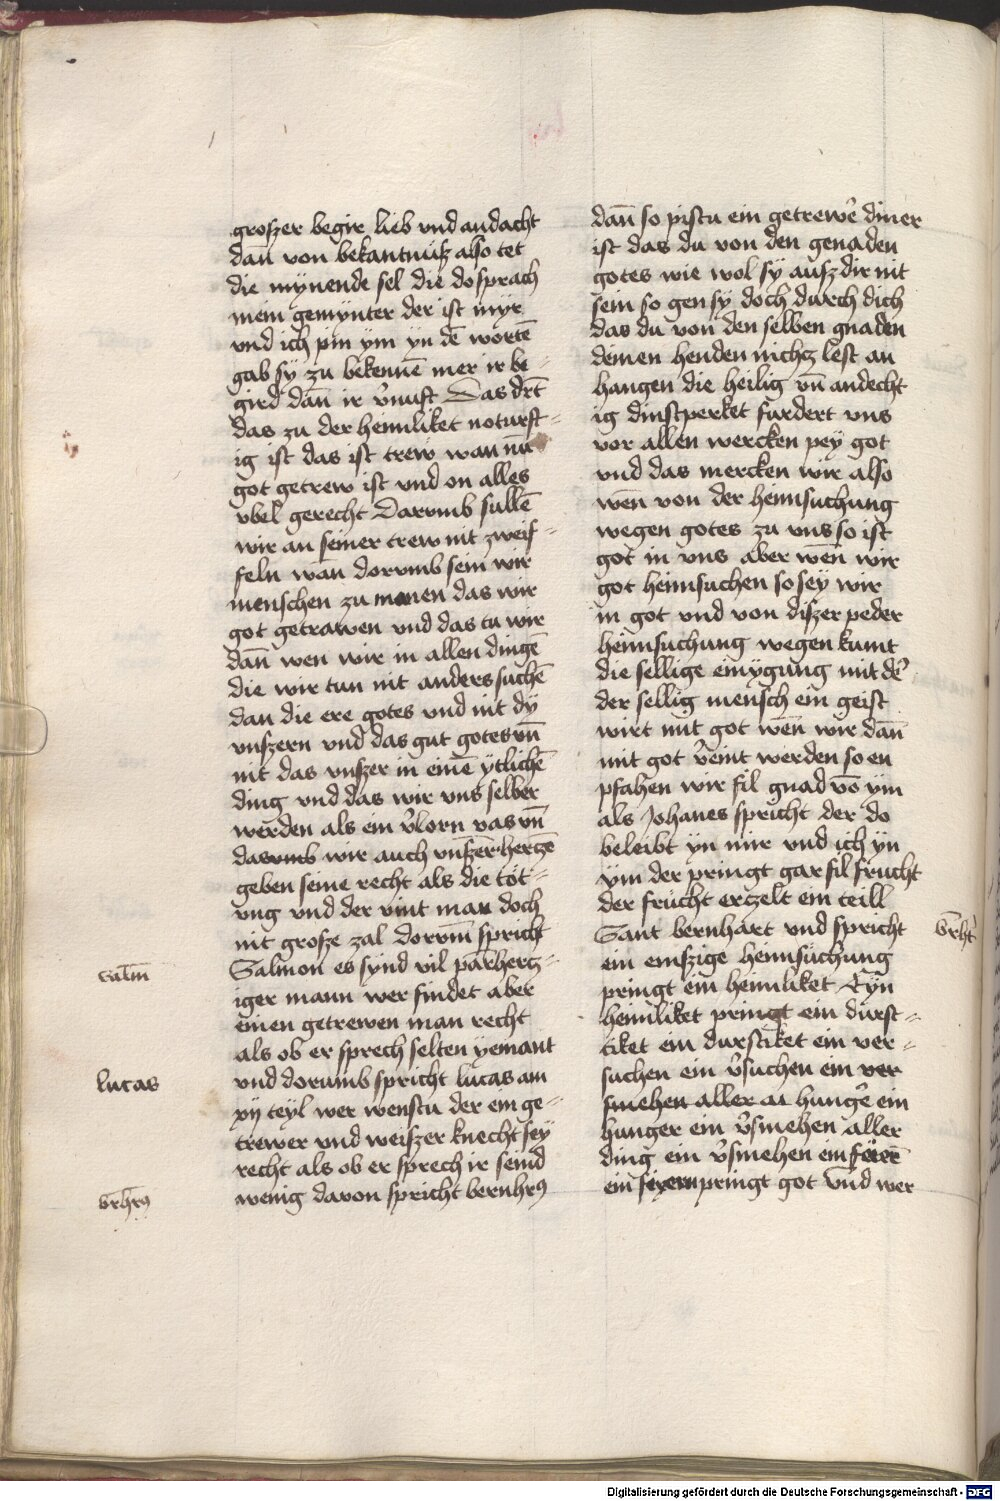 groszer begir lieb vnd andacht
dañ von bekantnüsz also tet
die mynende sel die do sprach
mein gemynter der ist myr
vnd ich pin ym yn dē wortē
gab sy zu bekennē mer ir be-
gird dañ ir v̉nuft Das drt̄
das zu der heimliket noturft-
ig ist das ist trew wan nū
got getrew ist vnd on alles
vbel gerecht Darumb sullē
wir an seiner trew nit zweif-
feln wañ dorvmb sein wir
menschen zu manen das wir
got getrawen vnd das tu wir
dañ wen wir in allen dingē
die wir tun nit anders suchē
dan die ere gotes vnd nit dÿ
vnszern vnd das gut gotes vñ
nit das vnszer in einē ytlichē
ding vnd das wir vns selber
werden als ein v̉lorn vas vñ
dasvmb wir auch vnszer hertzē
geben seine recht als die töt-
vng vnd der vint man doch
nit grosze zal dorvm̄ spricht
Salmon es synd vil parhertz-
iger mann wer findet aber
einen getrewen man recht
als ob er sprech selten yemant
vnd dorumb spricht lucas am
xij teyl wer wenstu der ein ge-
trewer vnd weiszer knecht sey
recht als ob er sprech ir seind
wenig davon spricht bernhr9
salm̄
lucas
br̄hr9
dañ so pistu ein getrewē diner
ist das du von den genaden
gotes wie wol sÿ ausz dir nit
sein so gen sÿ doch durch dich
das du von den selben gnaden
deinen henden nichtz lest an
hangen die heilig vñ andecht
ig dinstperket furdert vns
vor allen wercken pey got
vnd das mercken wir also
wēn von der heimsuchung
wegen gotes zu vns so ist
got in vns aber wēn wir
got heimsuchen so sey wir
in got vnd von diszer peder
heimsuchung wegen kumt
die sellige einygung mit dē
der sellig mensch ein geist
wirt mit got wēn wir dañ
mit got v̉eint werden so en
pfahen wir fil gnad vō ym
als Johanes spricht der do
beleibt yn mir vnd ich yn
ym der pringt gar fil frucht
der frucht erzelt ein teill
Sant bernhart vnd spricht
ein emszige heimsuchung
pringt ein heimliket Eyn
heimliket pringt ein durst-
tiket ein durstiket ein ver-
suchen ein v̉suchen ein ver
smehen aller ai hungē ein
hunger ein v̉smehen aller
ding ein v̉smehen ein feierē
ein feyern pringt got vnd wer
br̄ht
Digitalisierung gefördert durch die Deutsche Forschungsgemeinschaft - DFG